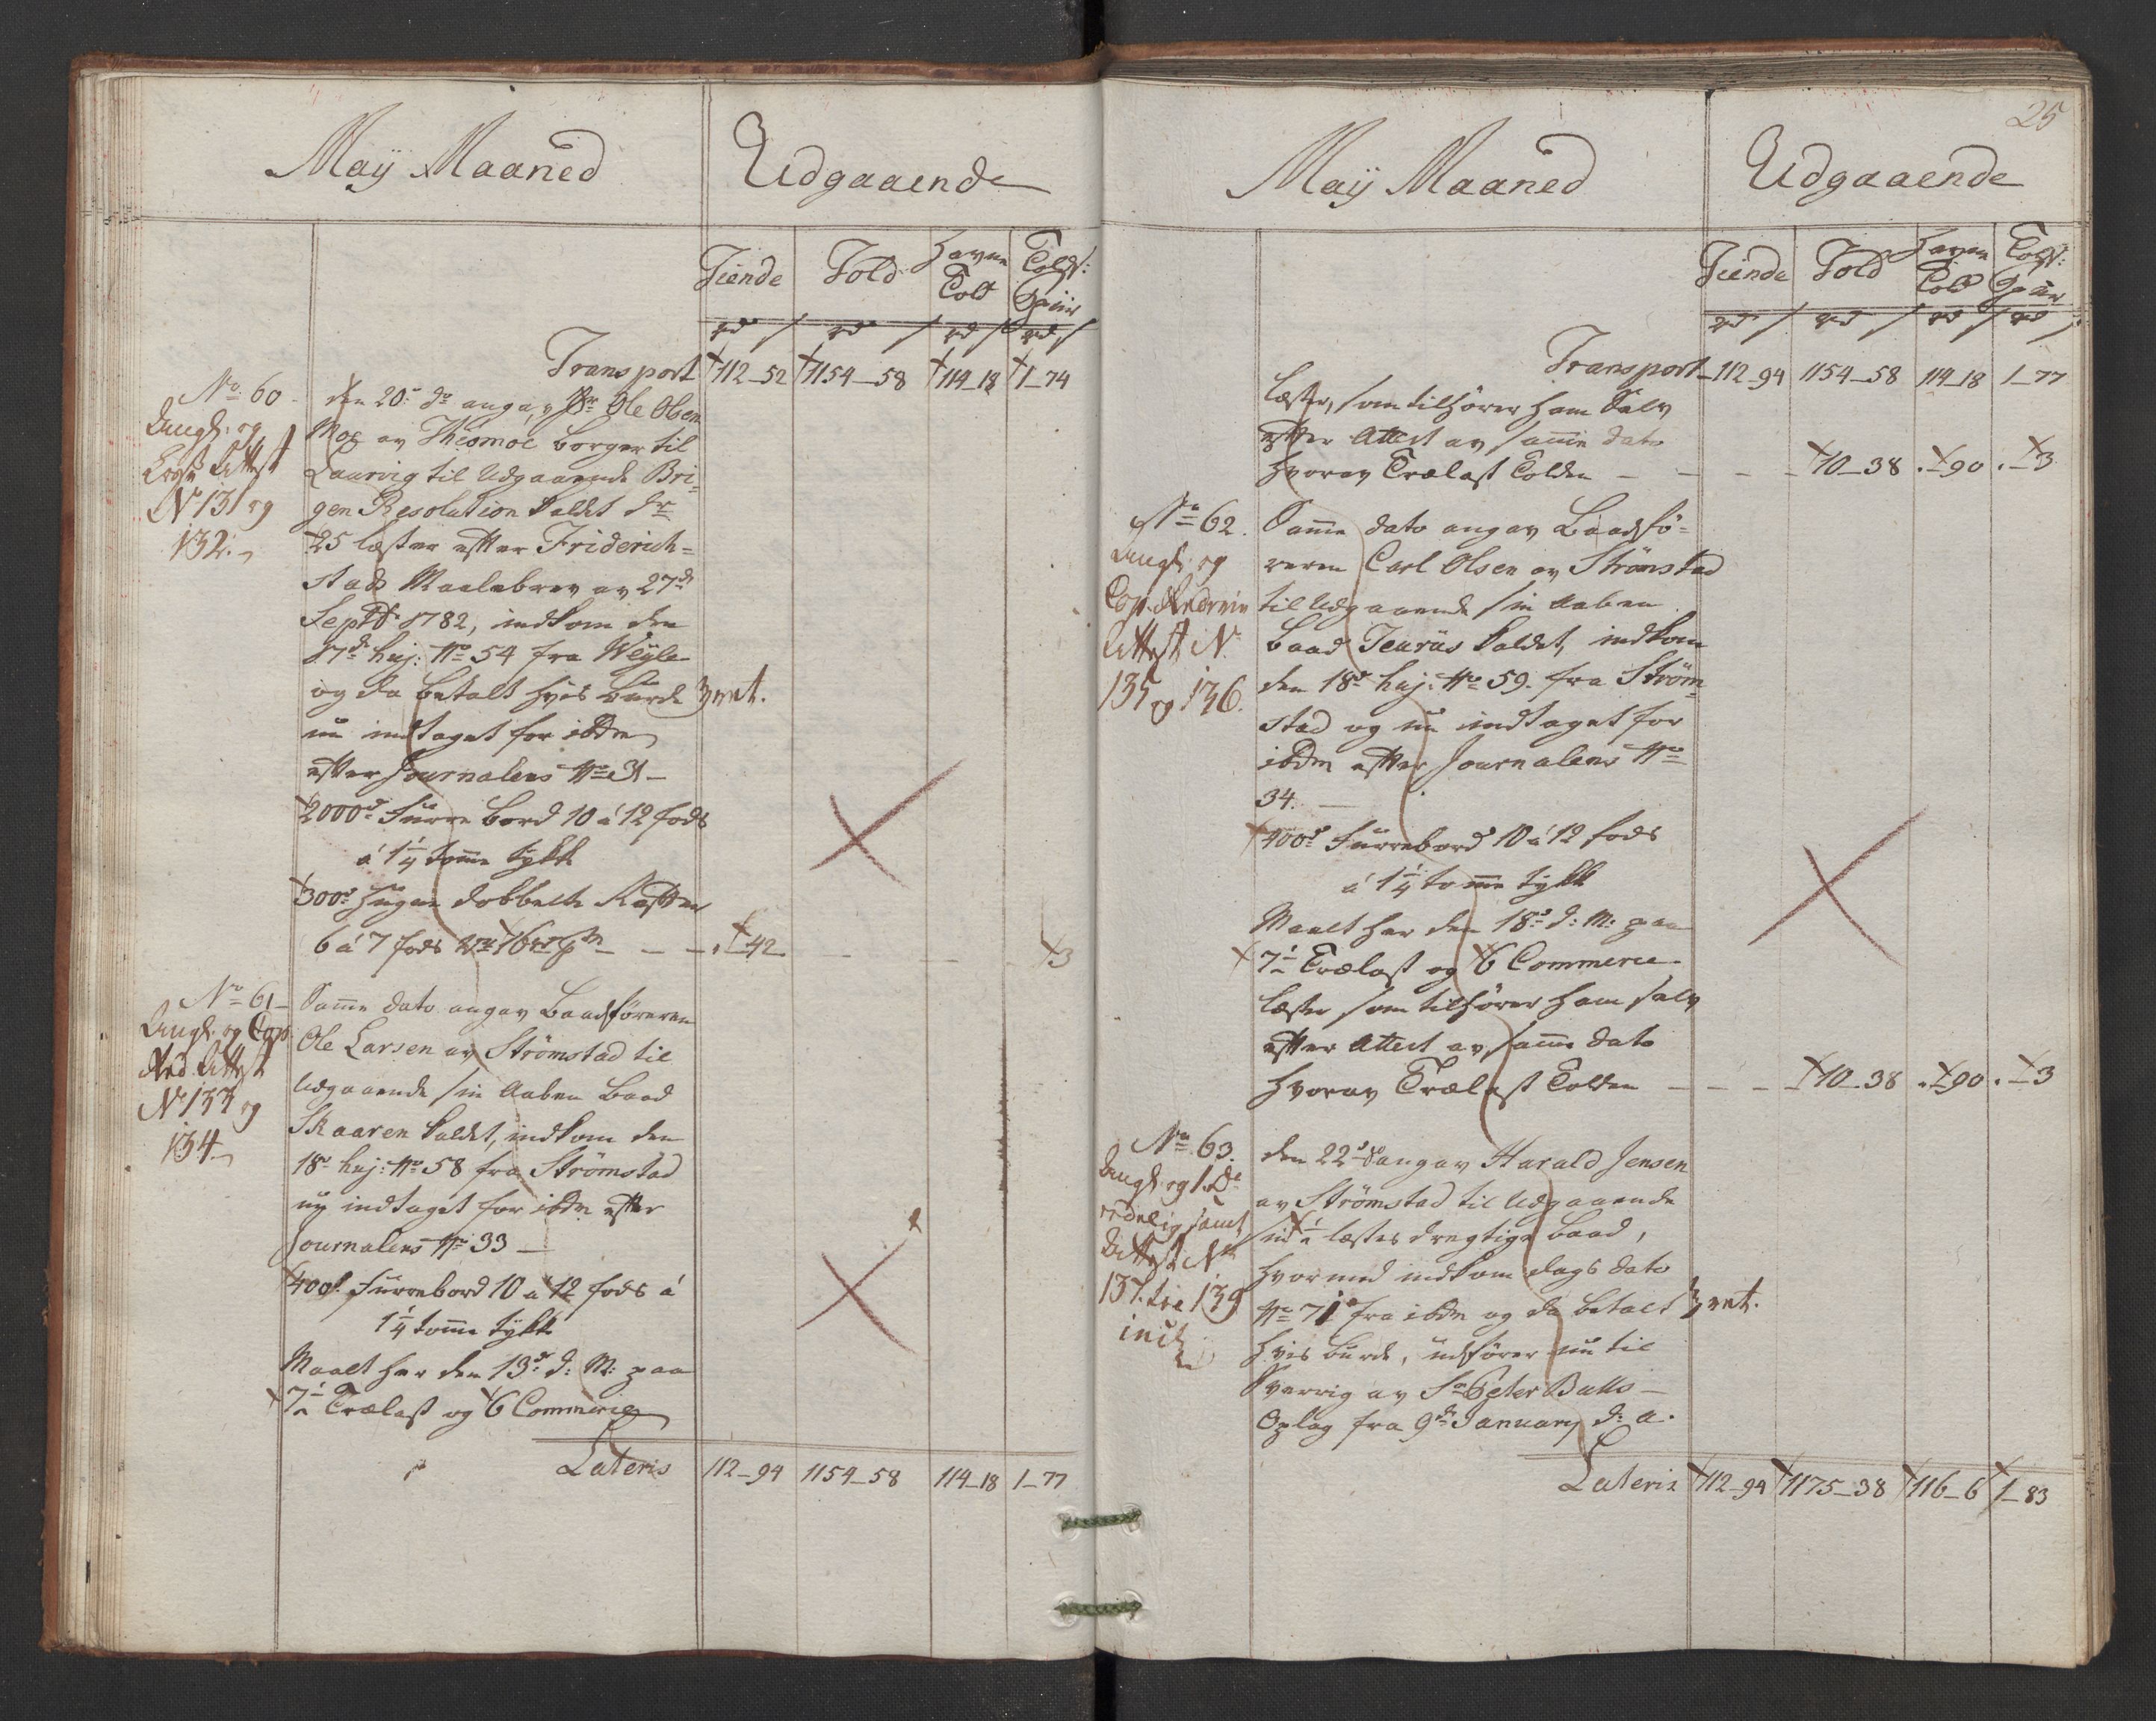 Maij Maaned
Udgaaende
Tiende
Told
Havne Told
Told
rd s rd s rd s rd s
Transport 112_52 1154_58 114_18 1_74
No 60
Angs. og
Attest
No 131 og
132.
den 20de do angav Ole Olsen
Moe av Thiømoe borger til
Laurvig til Udgaaende Bri-
gen Resolution kaldt dr.
25 læster efter Friderich-
stads Maalebrev av 27de
Septbr 1782, indkom den
17de huj: No 54 fra Weyle
og da betalt hvis burde
nu indtaget for ibdm
efter Journalens No 31
2000de Furre bord 10 a 12 fods
á 1 1/4 tomme tykk
300de dobbelte
6 á 7 fods
_42
3
No 61
Angs. og Cap
Attest
No 133 og
134
Samme dato angav Baadføreren
Ole Larsen av Strömstad til
Udgaaende sin Aaben Baad
Skaaren kaldet, indkom den
18de huj: No 58 fra Strömstad
nu indtaget for ibdm efter
Journalens No 33
400de Furrebord 10 a 12 fods á
1 1/4 tomme tykk
Maalt her den 13de d: M: paa
7 1/2 Trælast og 6 Commerce
Lateris 112_94 1154_58 114_18 1_77
25
Maij Maaned
Udgaaende
Tiende
Told
Havne Told
Told
rd s rd s rd s rd s
Transport 112_94 1154_58 114_18 1_77
læster, som tilhører ham Selv
efter Attest av samme dato
hvorav Trælast Tolden _ _ _ 10_38 . _90 . _3
No 62.
Angs. og
Attest No
135 og 136.
Samme dato angav Baadfø-
reren Carl Olsen av Strömstad
til Udgaaende sin aaben
baad kaldet, indkom
den 18de huj: No 59. fra Ström-
stad og nu indtaget for
ibdm efter Journalens No
34.
400de Furrebord 10 á 12 fods
á 1 1/4 tomme tykk
Maalt her den 18de d: M: paa
7 1/2 Trælast og 6 Commerce
læster som tilhører ham selv
efter Attest av samme dato
hvorav Trælast Tolden _ _ _ 10_38 . _90 . _3
No 63.
Angs. og
samt
Attest No
137. til 139
incl.
den 22de do angav Harald Jensen
av Strömstad til Udgaaende
sin læsters drægtige baad,
hvormed indkom dags dato
No 71 fra ibdm og da betalt
hvis burde, udfører nu til
Sverrig av Sr Peter Bulls
Oplag fra 9de January d: a.
Lateris 112_94 1175_38 116_6 1_83